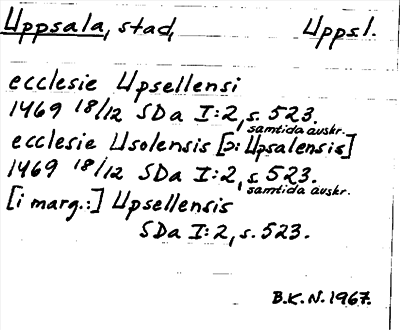 Uppsala, stad, Uppsl.
ecclesie Upsellensi
1469 18/12 SDa I:2, s. 523.
samtida avskr.
ecclesie Usolensis [ɔ: Upsalensis]
1469 18/12 SDa I:2, s. 523.
samtida avskr.
[i marg.:] Upsellensis
SDa I:2, s. 523.
B.K.N. 1967.